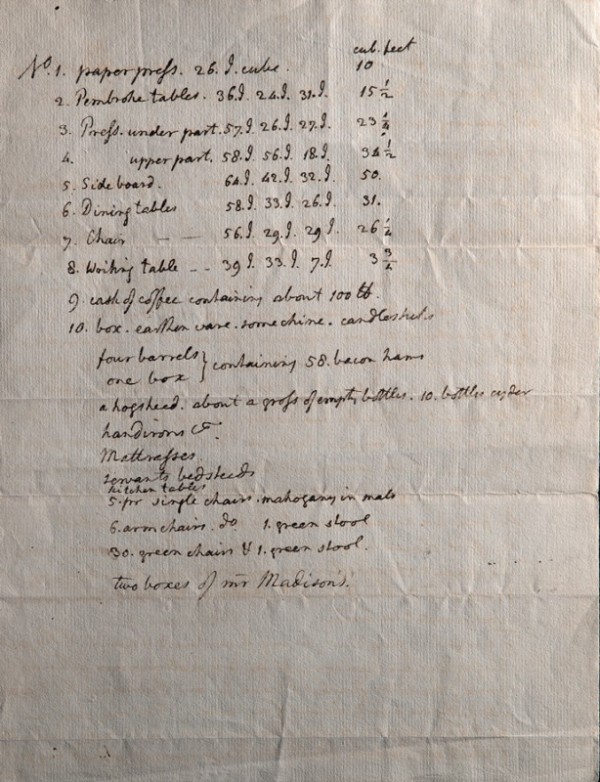 cub. feet
No. 1. paper press. 26. I. cube. 10
2. Pembroke tables. 36. I. 24. I. 31. I. 15 1/2
3. Press. under part. 57. I. 26. I. 27. I. 23 1/4
4. upper part. 58. I. 56. I. 18. I. 34 1/2
5. Side board. 64. I. 42. I. 32. I. 50.
6. Dining tables 58. I. 33. I. 26. I. 31.
7. Chair — — 56. I. 29. I. 29. I. 26 1/4
8. Writing table -- 39 I. 33. I. 7. I. 3 3/4
9. cask of coffee containing about 100 lb.
10. box. earthen ware. some chine. candlesticks
four barrels } containing 58. bacon hams
one box
a hogshead. about a gross of empty bottles. 10. bottles cyder
handirons &c.
Mattrasses.
servants bedsteads
kitchen tables
5. pr single chairs. mahogany in mats
6. arm chairs. do 1. green stool
30. green chairs & 1. green stool.
two boxes of mr Madison's.